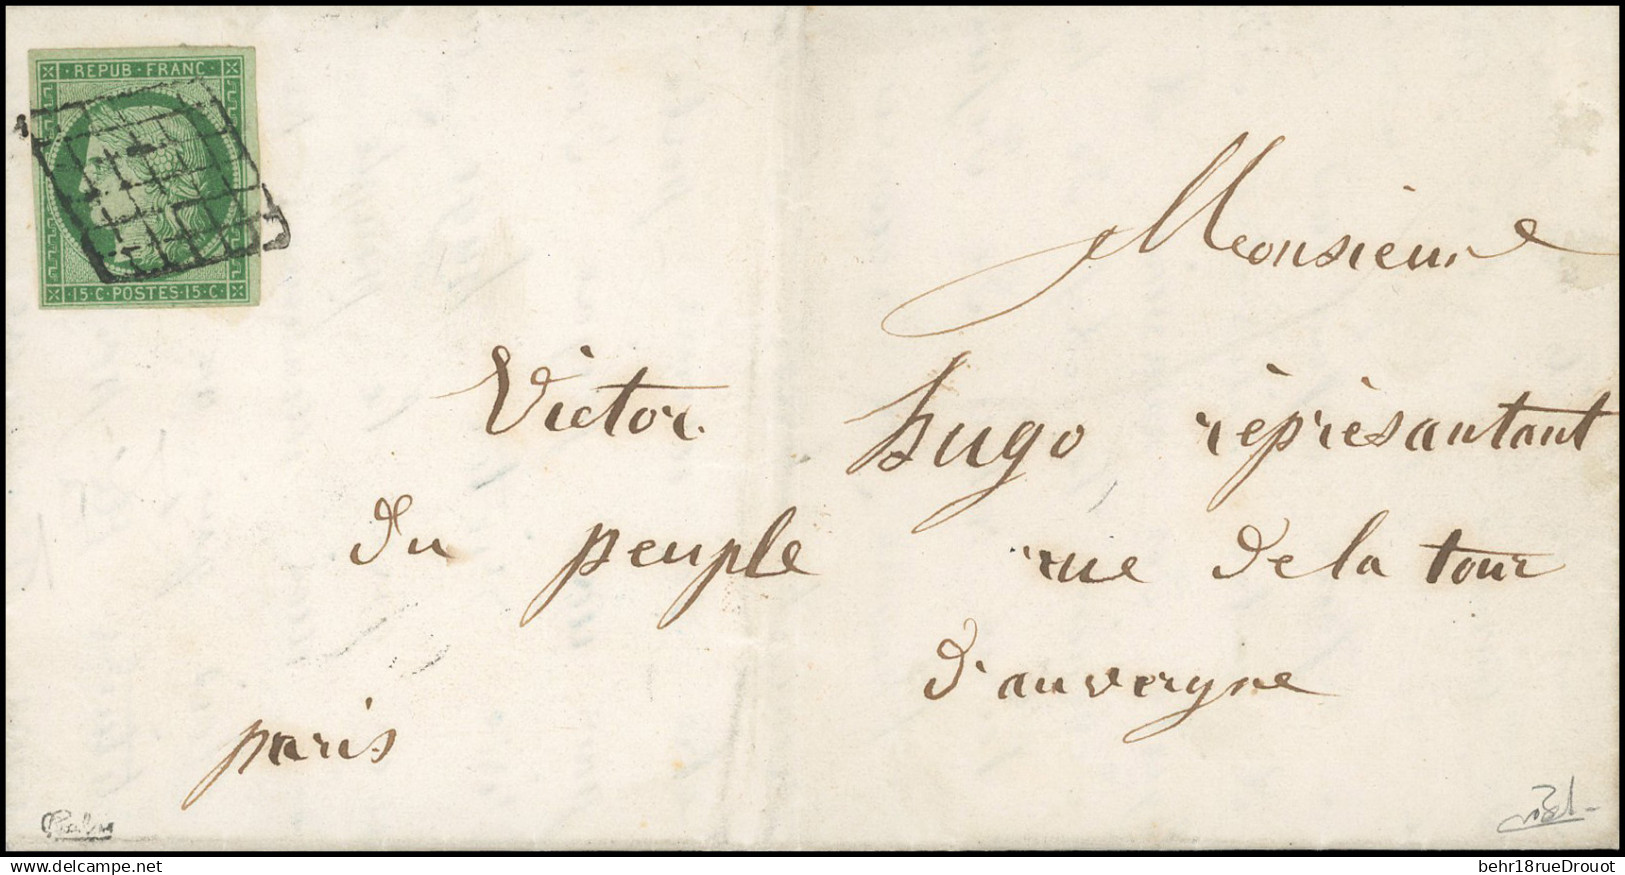 REPUB · FRANC
15 · C · POSTES · 15 · C ·
Monsieur
Victor hugo réprésantant
du peuple rue de la tour
d'auvergne
paris
www.delcampe.net
behr18rueDrouot